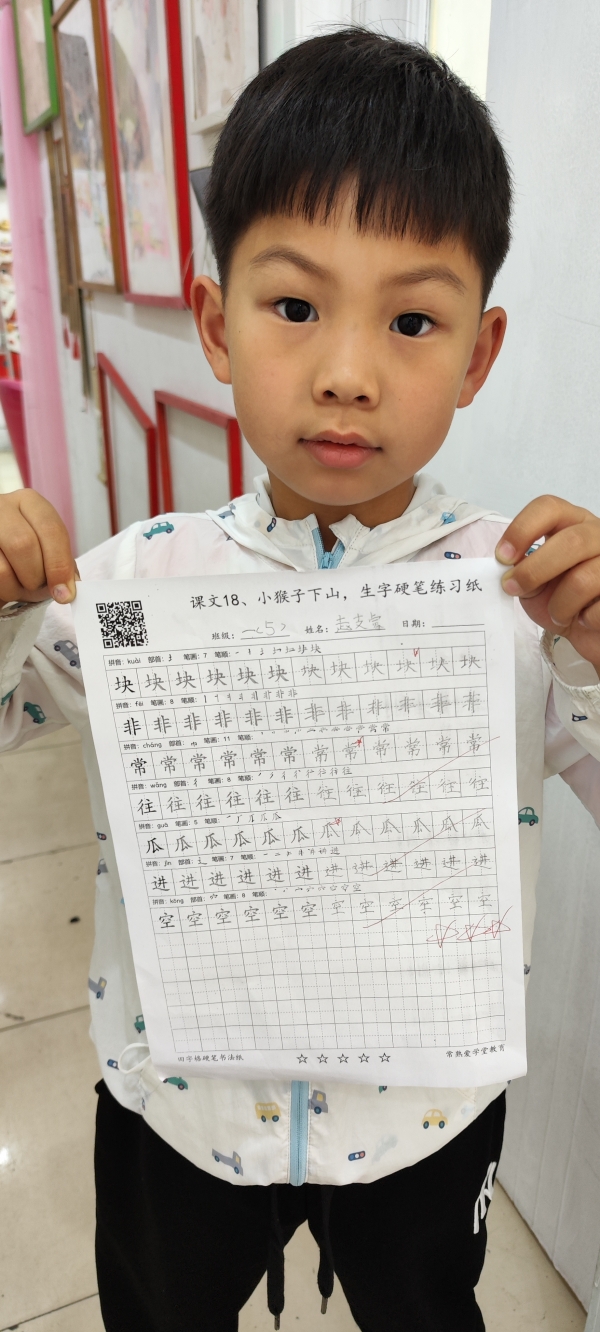 课文18、小猴子下山，生字硬笔练习纸
班级： 一（5） 姓名： 日期：
拼音：kuài 部首：扌 笔画：7 笔顺：
块 块 块 块 块 块 块 块 块 块 块 块
拼音：fēi 部首： 笔画：8 笔顺：
非 非 非 非 非 非 非 非 非 非 非 非
拼音：cháng 部首： 笔画：11 笔顺：
常 常 常 常 常 常 常 常 常 常 常 常
拼音：wǎng 部首：彳 笔画：8 笔顺：
往 往 往 往 往 往 往 往 往 往 往 往
拼音：guā 笔画：5 笔顺：
瓜 瓜 瓜 瓜 瓜 瓜 瓜 瓜 瓜 瓜 瓜 瓜
拼音：jìn 部首：辶 笔画：7 笔顺：
进 进 进 进 进 进 进 进 进 进 进 进
拼音：kōng 部首：穴 笔画：8 笔顺：
空 空 空 空 空 空 空 空 空 空 空 空
田字格硬笔书法纸 ☆ ☆ ☆ ☆ ☆ 常熟爱学堂教育